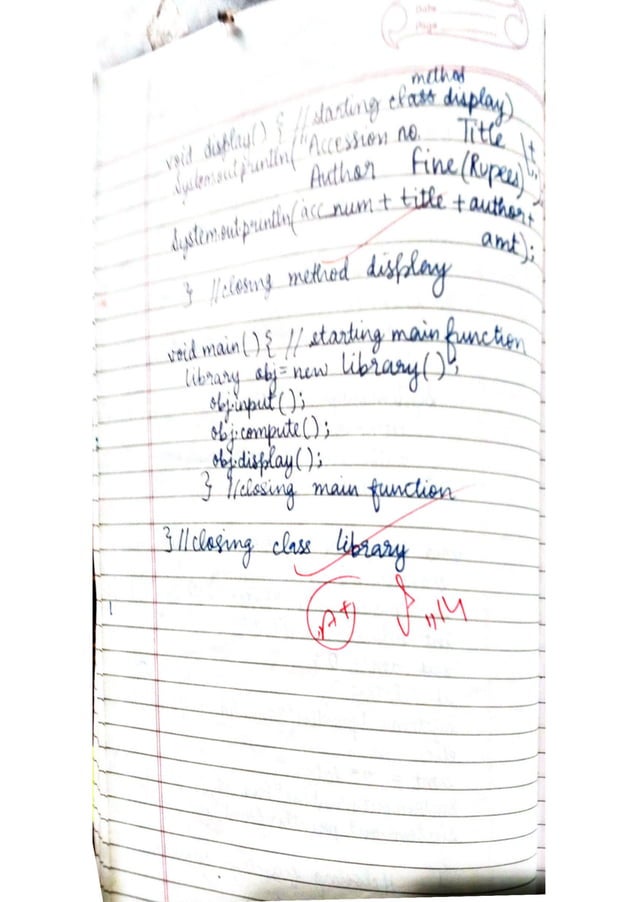 Date
Page
method
void display() { // starting class display)
System.out.println("Accession no. Title \t
Author Fine (Rupees)");
System.out.println(acc_num + title + author +
amt);
} // closing method display
void main() { // starting main function
library obj = new library();
obj.input();
obj.compute();
obj.display();
} // closing main function
} // closing class library
A+